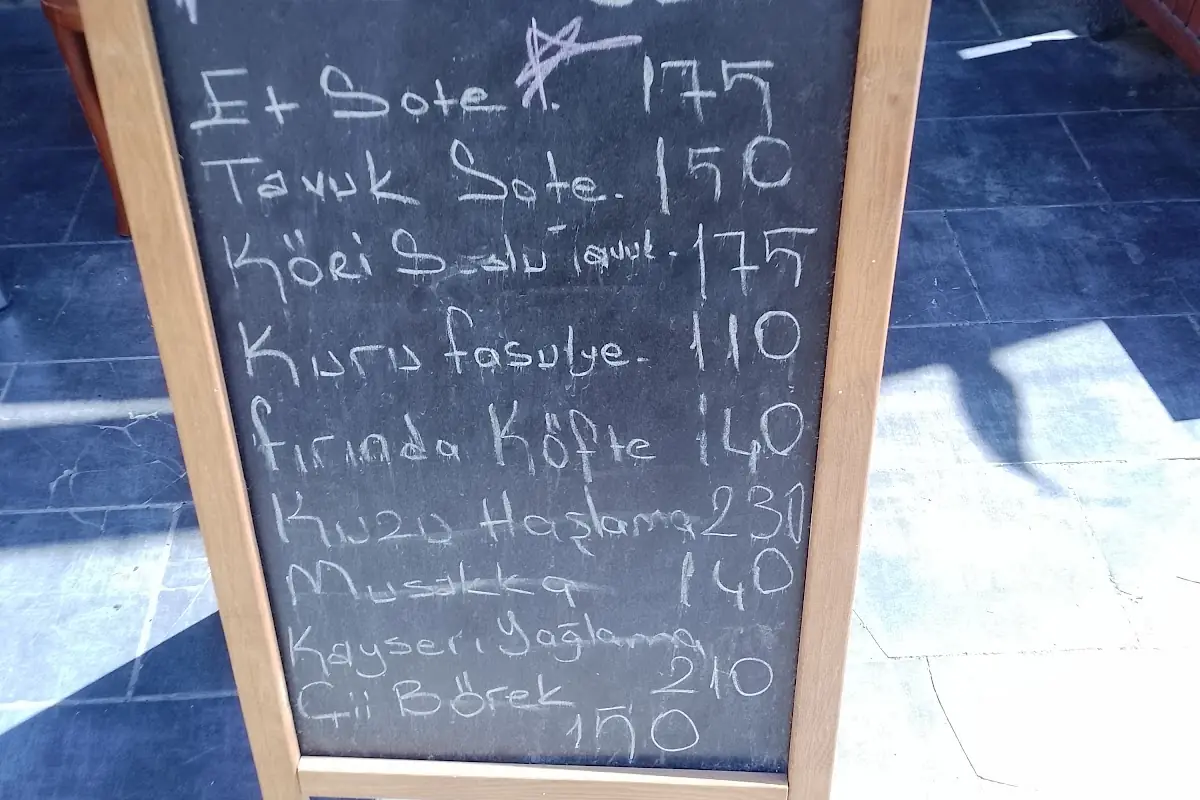 Et Sote. 175
Tavuk Sote. 150
KÖRİ Soslu Tavuk. 175
Kuru fasulye. 110
fırında Köfte 140
Kuzu Haşlama 230
Musakka 140
Kayseri Yağlama
210
Çii Börek
150